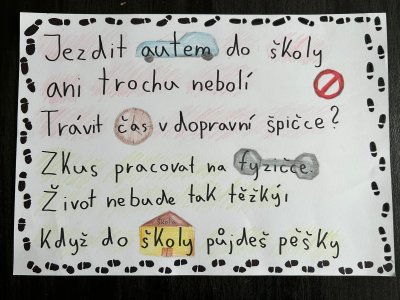 Jezdit autem do školy
ani trochu nebolí
Trávit čas v dopravní špičce?
Zkus pracovat na fyzičce.
Život nebude tak těžký,
Když do školy půjdeš pěšky